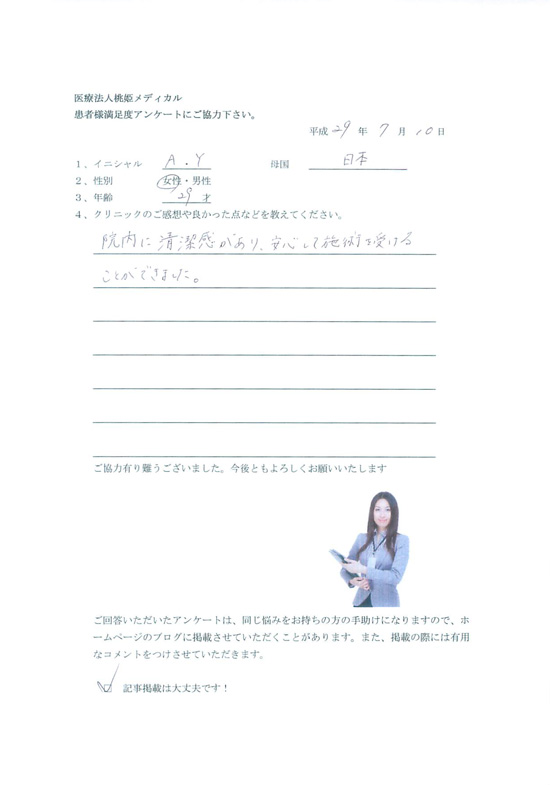 医療法人桃姫メディカル
患者様満足度アンケートにご協力下さい。
平成 29 年 7 月 10 日
1、イニシャル A．Y 母国 日本
2、性別 女性・男性
3、年齢 29 才
4、クリニックのご感想や良かった点などを教えてください。
院内に清潔感があり、安心して施術を受ける
ことができました。
ご協力有り難うございました。今後ともよろしくお願いいたします
ご回答いただいたアンケートは、同じ悩みをお持ちの方の手助けになりますので、ホ
ームページのブログに掲載させていただくことがあります。また、掲載の際には有用
なコメントをつけさせていただきます。
記事掲載は大丈夫です！